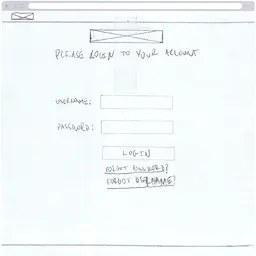 PLEASE LOGIN TO YOUR ACCOUNT
USERNAME:
PASSWORD:
LOGIN
FORGOT PASSWORD?
FORGOT USERNAME?